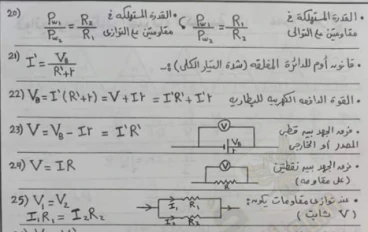 20) Pw1/Pw2 = R2/R1 • القدرة المستهلكة في مقاومتين على التوازى
Pw1/Pw2 = R1/R2 • القدرة المستهلكة في مقاومتين على التوالى
21) I' = VB/R'+r • قانون أوم للدائرة المغلقه (شدة التيار الكلى) :-
22) VB = I'(R'+r) = V+Ir = I'R'+I'r • القوة الدافعه الكهربيه للبطاريه
23) V = VB - Ir = I'R' V VB r • فرق الجهد بين قطبى المصدر أو الخارجى
24) V = IR V R • فرق الجهد بين نقطتين (على مقاومه)
25) V1 = V2 I1 R1 I2 R2 • عند توازى مقاومات يكون:
I1R1 = I2R2 (V ثابت)